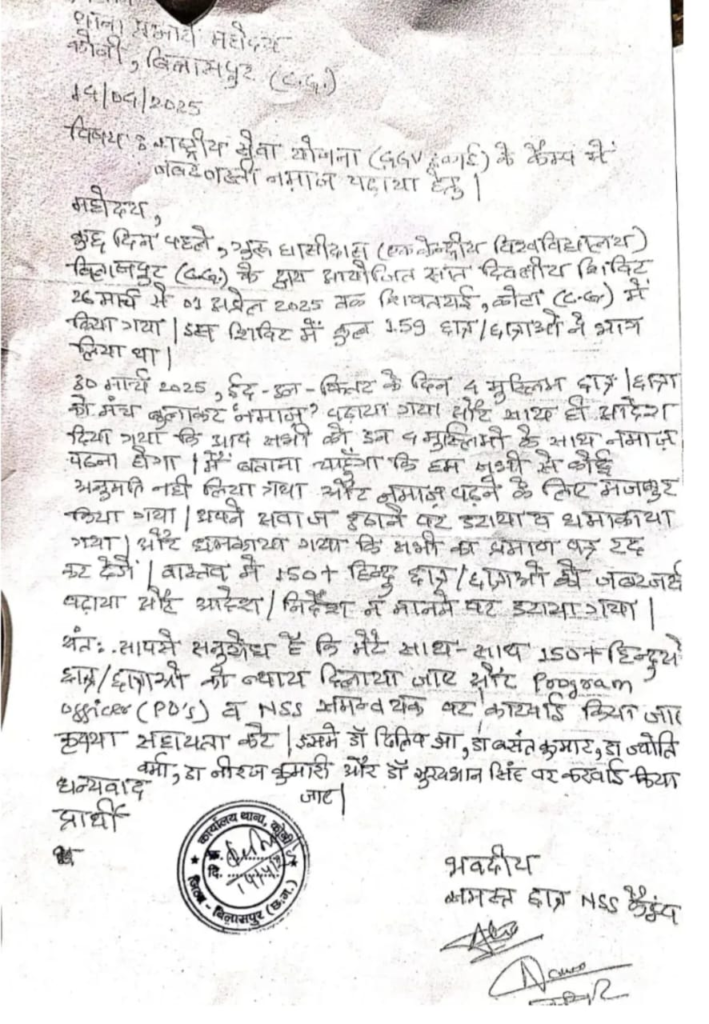 थाना प्रभारी महोदय
कोनी, बिलासपुर (C.G.)
14/04/2025
विषय : राष्ट्रीय सेवा योजना (GGV इकाई) के कैम्प में
जबरदस्ती नमाज पढ़ाया हेतु।
महोदय,
कुछ दिन पहले, गुरु घासीदास (एक केन्द्रीय विश्वविद्यालय)
बिलासपुर (C.G.) के द्वारा आयोजित सात दिवसीय शिविर
26 मार्च से 01 अप्रेल 2025 तक शिवतराई, कोटा (C.G.) में
किया गया। इस शिविर में कुल 159 छात्र/छात्राओं ने भाग
लिया था।
30 मार्च 2025, ईद-उल-फितर के दिन 4 मुस्लिम छात्र/छात्रा
को मंच बुलाकर 'नमाज' पढ़ाया गया और साथ ही आदेश
दिया गया कि आप सभी को इन 4 मुस्लिमो के साथ नमाज
पढना होगा। मैं बताना चाहूँगा कि हम सभी से कोई
अनुमति नही लिया गया और नमाज पढ़ने के लिए मजबुर
किया गया। अपने आवाज उठाने पर डराया व धमाकाया
गया। और धमकाया गया कि सभी का प्रमाण पत्र रद्द
कर देगें। वास्तव में 150+ हिन्दु छात्र/छात्राओं को
पढ़ाया और आदेश/निर्देश न मानने पर डराया गया।
अंतः आपसे अनुरोध है कि मेरे साथ-साथ 150+ हिन्दुये
छात्र/छात्राओं को न्याय दिलाया जाए और Program
officer (PO's) व NSS समन्वयक पर कारवाई किया जाए
कृपया सहायता करे। इसमे डॉ दिलिप झा, डा बसंत कुमार, डा ज्योति
वर्मा, डा नीरज कुमारी और डॉ सुर्यभान सिंह पर करवाई किया
जाए।
धन्यवाद
प्रार्थी
कार्यालय थाना, कोनी
क्र.
दि. 14/4/25
जिला - बिलासपुर (छ.ग.)
भवदीय
समस्त छात्र NSS कैंडेंय